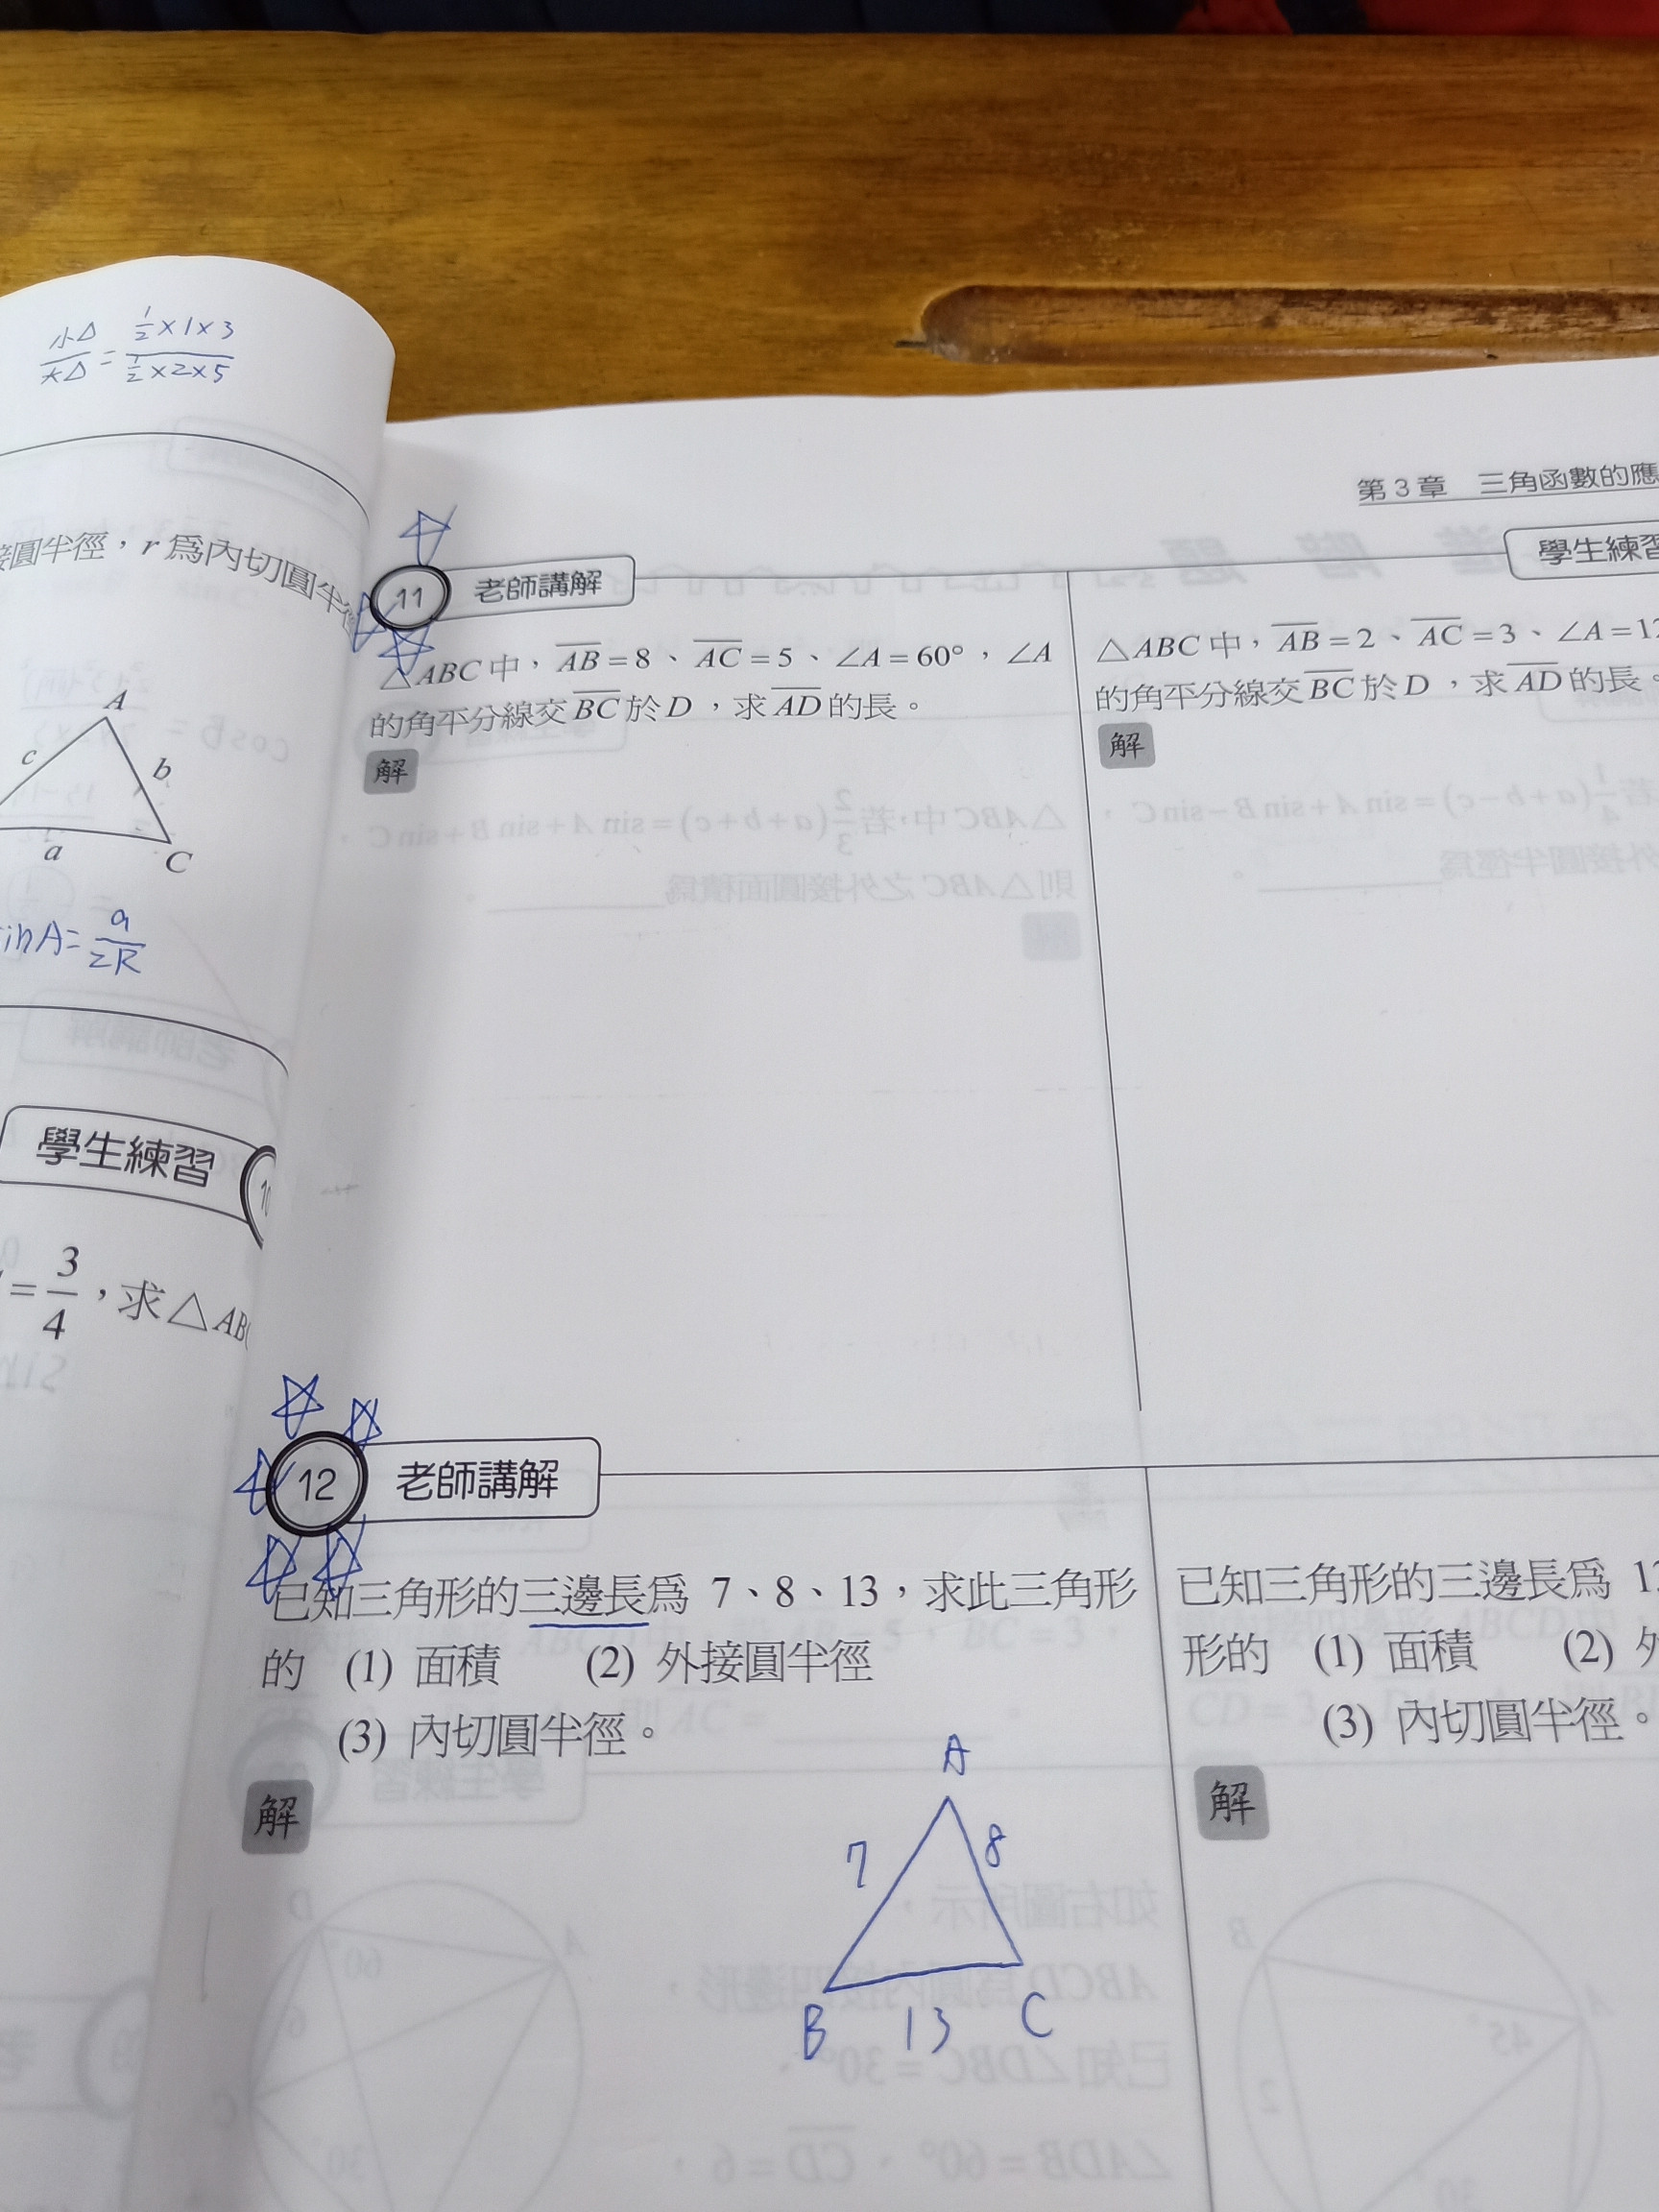 小△/大△ = ½×1×3 / ½×2×5
接圓半徑，r 爲內切圓半徑
A
c
b
a
C
sinA = a/2R
學生練習
= 3/4，求△ABC
第 3 章 三角函數的應
11 老師講解
△ABC 中，AB = 8、AC = 5、∠A = 60°，∠A
的角平分線交 BC 於 D，求 AD 的長。
解
學生練習
△ABC 中，AB = 2、AC = 3、∠A = 12
的角平分線交 BC 於 D，求 AD 的長。
解
12 老師講解
已知三角形的三邊長爲 7、8、13，求此三角形
的 (1) 面積 (2) 外接圓半徑
(3) 內切圓半徑。
解
A
7
8
B
13
C
已知三角形的三邊長爲 1
形的 (1) 面積 (2) 外
(3) 內切圓半徑。
解